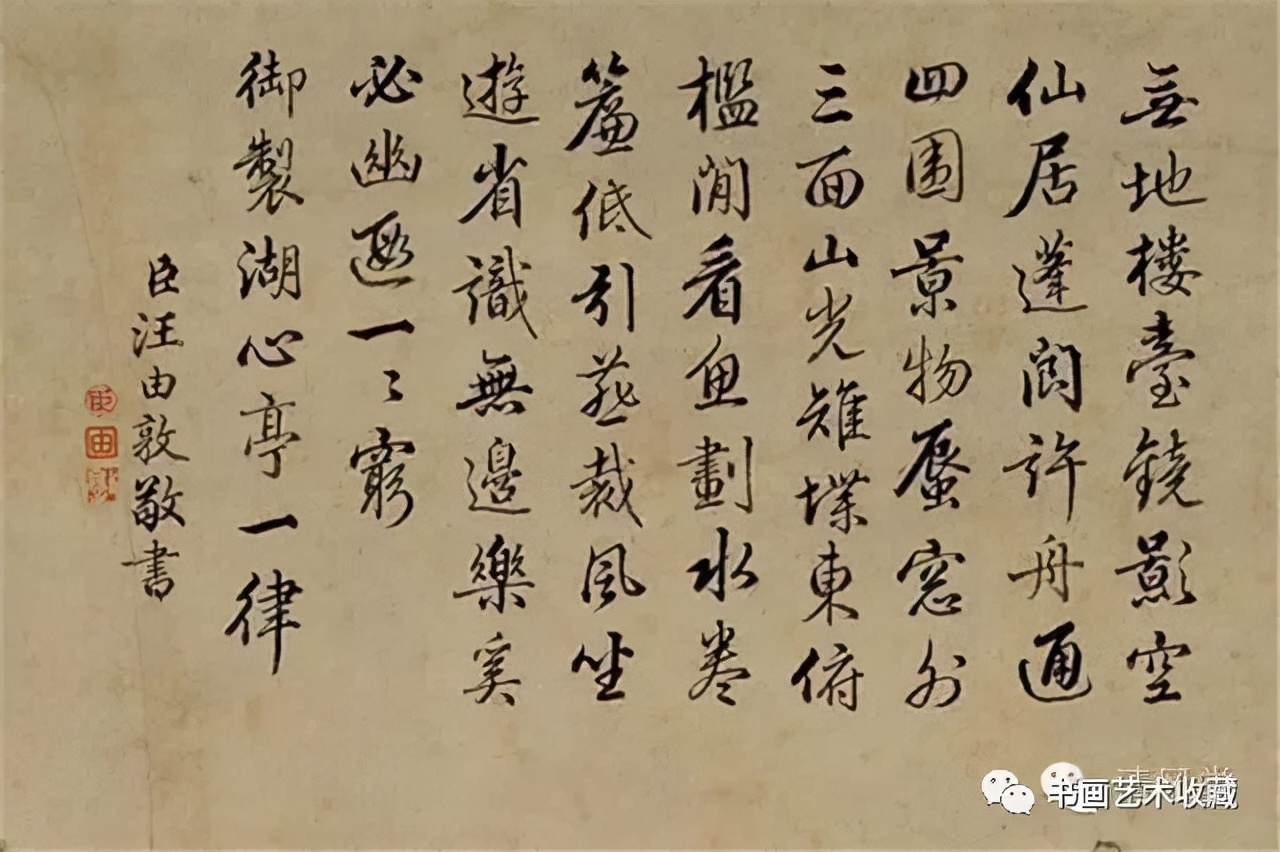 无地楼臺鏡影空
仙居蓬閬許舟通
四围景物蜃窓外
三面山光雉堞東俯
檻閒看鱼劃水卷
簾低引燕裁風坐
遊省識無邊樂奚
必幽遐一〻窮
御製湖心亭一律
臣汪由敦敬書
书画艺术收藏